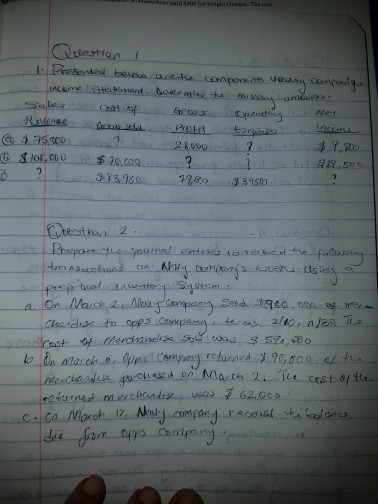 said $400 for freight charges. The cost
Question 1
1. Presented below are the components company's
income statement. Determine the missing amounts.
Sales Cost of Gross Operating Net
Revenue Goods Sold Profit Expenses Income
a $75,000 ? 28000 ? $9,800
b $108,000 $70,000 ? ? $29,500
? $83,900 79,600 $39500 ?
Question 2.
Prepare the journal entries to record the following
transactions on company's books using a
perpetual inventory System.
a. On March 2, Company Sold $900,000 of
chandise to opps Company, terms 2/10, n/30 The
cost of Merchandise Sold was $590,000
b On March 6, company returned $90,000 of the
Merchandise purchased on March 2. The cost of the
returned merchandise was $62,000
c. On March 12, company received the balance
due from opps company.